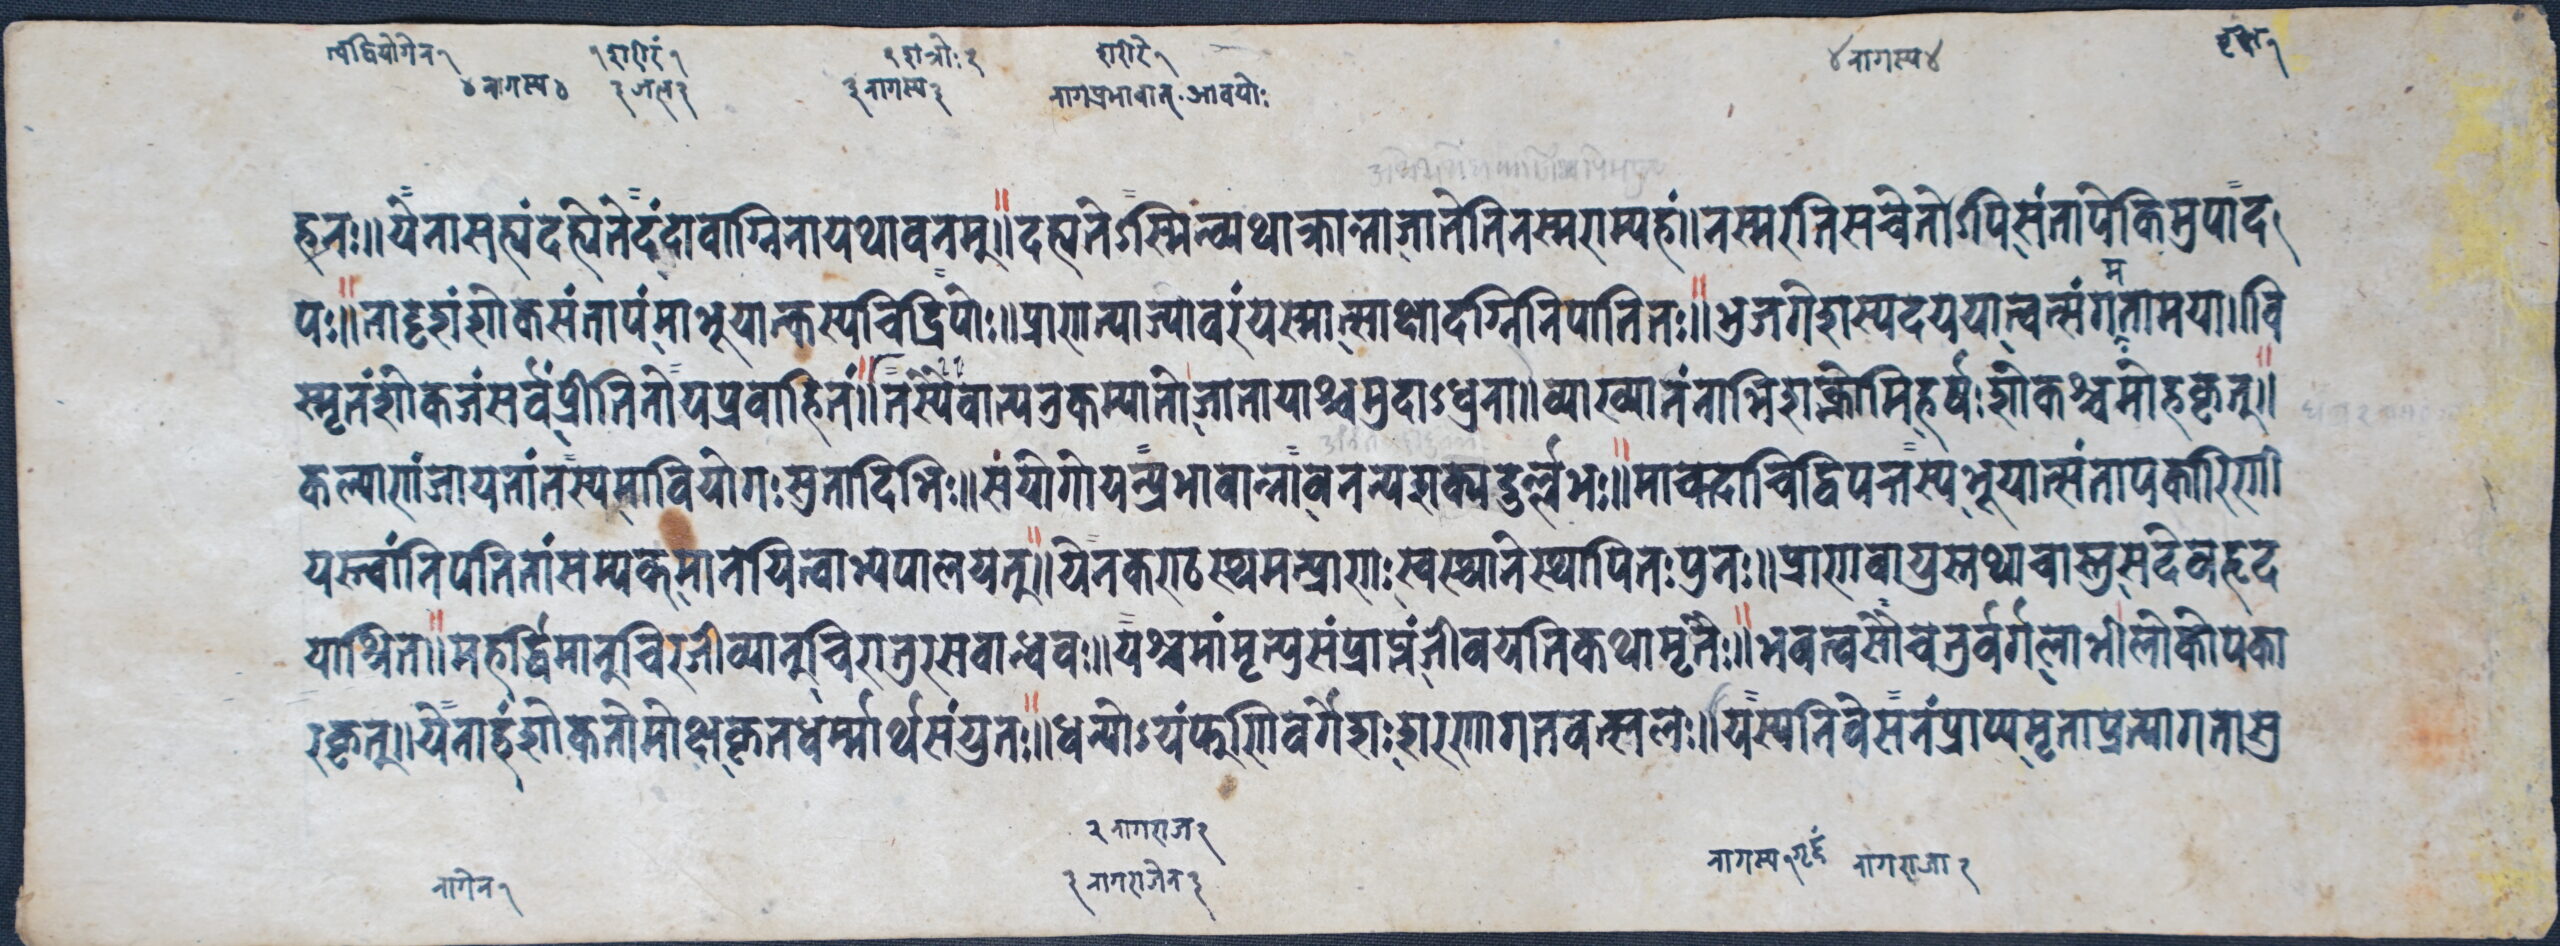 त्वद्वियोगेन१ १शरीरं१ १शत्रोः२ शरीरे१ ४नागस्य४
४नागस्य४ २जल२ ३नागस्य३ नागप्रभावात् आवयोः
हृतः॥येनासह्यंदह्येतेदंदावाग्निनायथावनम्॥दह्यतेऽस्मिन्व्यथाक्रान्ताज्ञातेतिनस्मराम्यहं॥नस्मरतिसचेतोऽपिसंतापेकिमुपाद
पः॥तादृशंशोकसंतापंमाभूयात्कस्यचिद्रिपोः॥प्राणान्याज्योवरंयस्मात्साक्षादग्निनिपातितः॥भुजगेशस्यदययात्वत्संगतामया॥वि
स्मृतंशोकजंसर्वंप्रीतितोयप्रवाहितं॥तस्यैवात्यनुकम्पातोज्ञातायाश्चमुदाऽधुना॥व्याख्यातंनाभिशक्नोमिहर्षःशोकश्चमोहकृत्॥
कल्याणंजायतांतस्यमावियोगःसुतादिभिः॥संयोगोयत्प्रभावान्नावतत्यशक्यदुर्ल्लभः॥माकदाचिद्विपत्तस्यभूयात्संतापकारिणी
यस्त्वांनिपतितांसम्यक्मानयित्वाभ्यपालयत्॥येनकण्ठस्थमत्प्राणाःस्वस्थानेस्थापितःपुनः॥प्राणवायुस्तथाचास्तुसदैवहृद
याश्रित॥महर्द्धिमान्चिरजीव्यान्चिरात्तुरसवान्धवः॥यश्चमांमृत्युसंप्राप्तंजीवयतिकथामृतैः॥भवत्वसौचतुर्वर्गलाभीलोकोपका
रकृत्॥येनाहंशोकतोमोक्षकृतधर्म्मार्थसंयुतः॥धन्योऽयंफणिवर्गेशःशरणागतवत्सलः॥यस्यनिवेसनंप्राप्यमृताप्रत्यागतासु
२नागराज२
नागेन१ ३नागराजेन३ नागस्य१गृहं नागराजा२